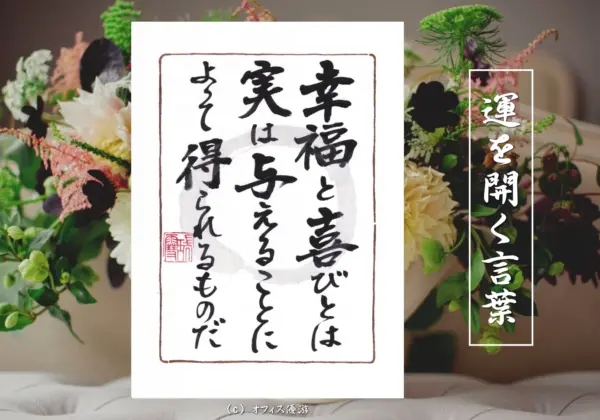 幸福と喜びとは
実は与えることに
よって得られるものだ
運を開く言葉
(c) オフィス優游